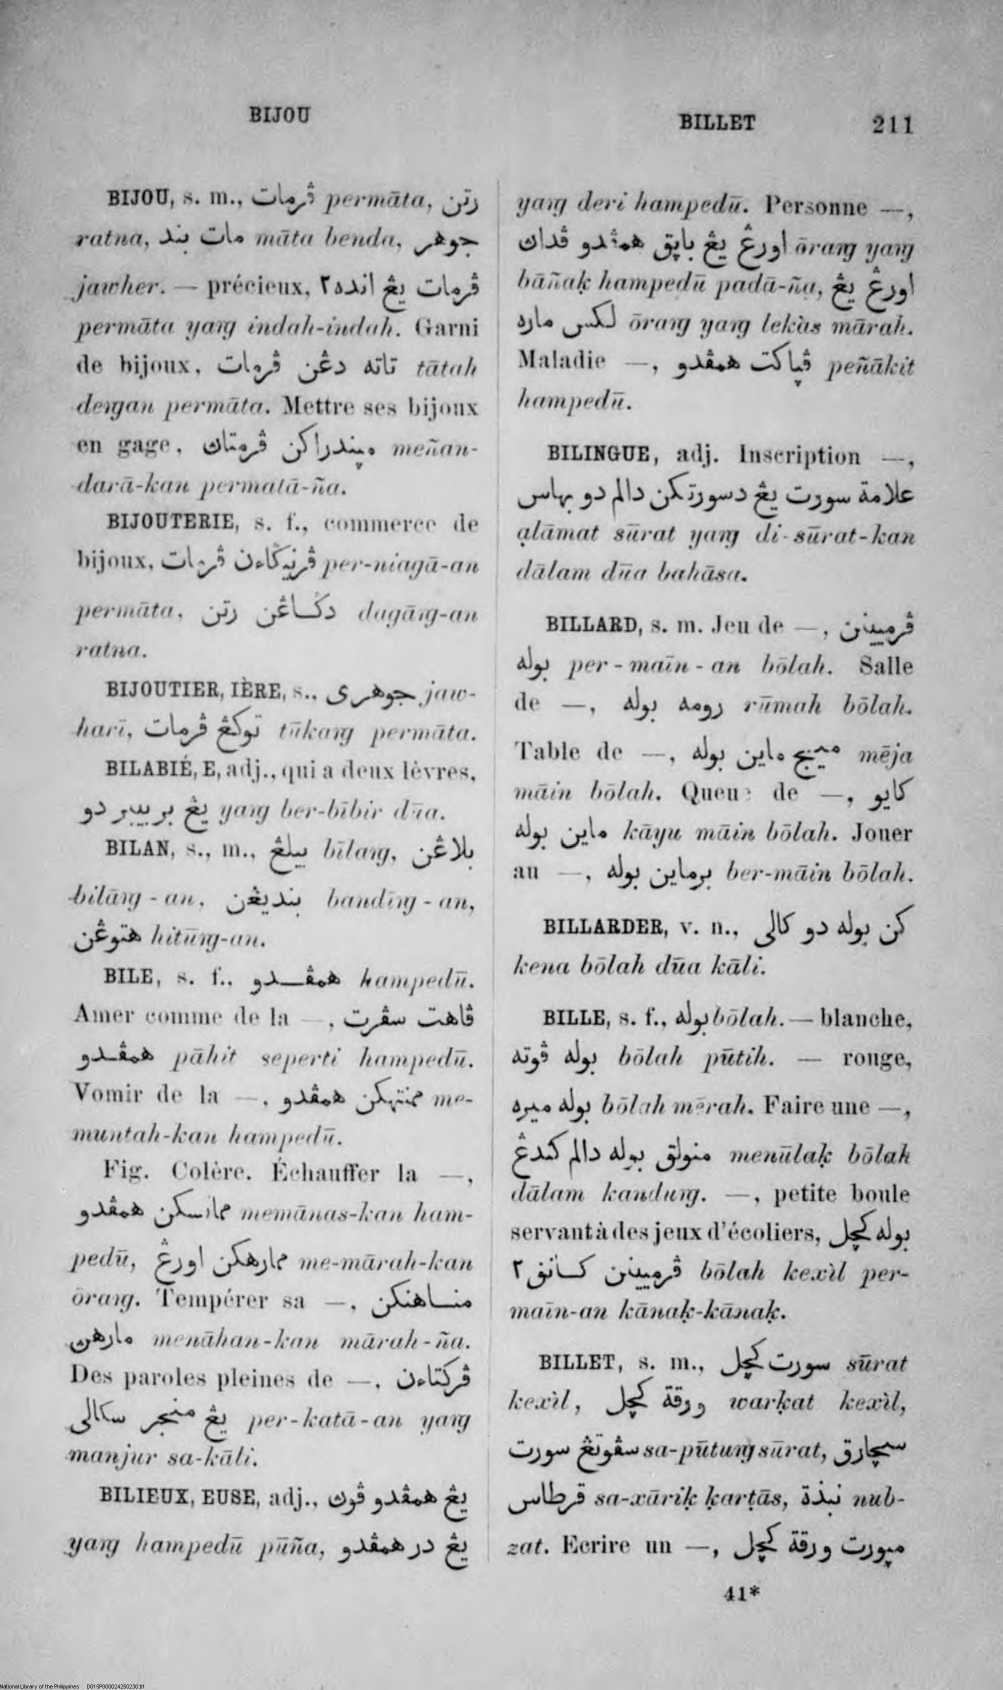 BIJOU
BILLET 211
BIJOU, s. m., ڤرمات permāta, رتن
ratna, مات بند māta benda, جوهر
jawher. — précieux, ڤرمات يڠ انده٢
permāta yaṅg indah-indah. Garni
de bijoux, تاته دڠن ڤرمات tātah
deṅgan permāta. Mettre ses bijoux
en gage, مڽندراكن ڤرمتاڽ meñan-
darā-kan permatā-ña.
BIJOUTERIE, s. f., commerce de
bijoux, ڤرنيݢاءن ڤرمات per-niagā-an
permāta, دݢاڠن رتن dagāṅg-an
ratna.
BIJOUTIER, IÈRE, s., جوهرى jaw-
harī, توكڠ ڤرمات tūkaṅg permāta.
BILABIÉ, E, adj., qui a deux lèvres,
يڠ بربيبر دو yaṅg ber-bībir dūa.
BILAN, s., m., بيلڠ bīlaṅg, بلاڠن
bilāṅg-an, بنديڠن bandīṅg-an,
هتوڠن hitūṅg-an.
BILE, s. f., همڤدو hampedū.
Amer comme de la —, ڤاهت سڤرت
همڤدو pāhit seperti hampedū.
Vomir de la —, ممنتهكن همڤدو me-
muntah-kan hampedū.
Fig. Colère. Échauffer la —,
ممانسكن همڤدو memānas-kan ham-
pedū, ممارهكن اورڠ me-mārah-kan
ōraṅg. Tempérer sa —, مناهنكن
مارهن menāhan-kan mārah-ña.
Des paroles pleines de —, ڤركتاءن
يڠ منجر سكالى per-katā-an yaṅg
manjur sa-kāli.
BILIEUX, EUSE, adj., يڠ همڤدو ڤوڽ
yaṅg hampedū pūña, يڠ در همڤدو
yaṅg deri hampedū. Personne —,
اورڠ يڠ باڽق همڤدو ڤداڽ ōraṅg yaṅg
bāñaḳ hampedū padā-ña, اورڠ يڠ
لكس ماره ōraṅg yaṅg lekàs mārah.
Maladie —, ڤڽاكت همڤدو peñākit
hampedū.
BILINGUE, adj. Inscription —,
علامة سورت يڠ دسورتكن دالم دو بهاس
ạlāmat sūrat yaṅg di-sūrat-kan
dālam dūa bahāsa.
BILLARD, s. m. Jeu de —, ڤرميينن
بوله per-maīn-an bōlah. Salle
de —, رومه بوله rūmah bōlah.
Table de —, ميج ماين بوله mēja
māin bōlah. Queue de —, كايو
ماين بوله kāyu māin bōlah. Jouer
au —, برماين بوله ber-māin bōlah.
BILLARDER, v. n., كن بوله دو كالى
kena bōlah dūa kāli.
BILLE, s. f., بوله bōlah. — blanche,
بوله ڤوته bōlah pūtih. — rouge,
بوله ميره bōlah mērah. Faire une —,
منولق بوله دالم كندڠ menūlaḳ bōlah
dālam kanduṅg. —, petite boule
servant à des jeux d'écoliers, بوله كچل
ڤرميينن كانق٢ bōlah kexìl per-
maīn-an kānaḳ-kānaḳ.
BILLET, s. m., سورت كچل sūrat
kexìl, ورقة كچل warḳat kexìl,
سڤوتڠ سورت sa-pūtuṅg sūrat, سچارق
قرطاس sa-xāriḳ ḳarṭās, نبذة nub-
zat. Ecrire un —, مڽورت ورقة كچل
41*
National Library of the Philippines